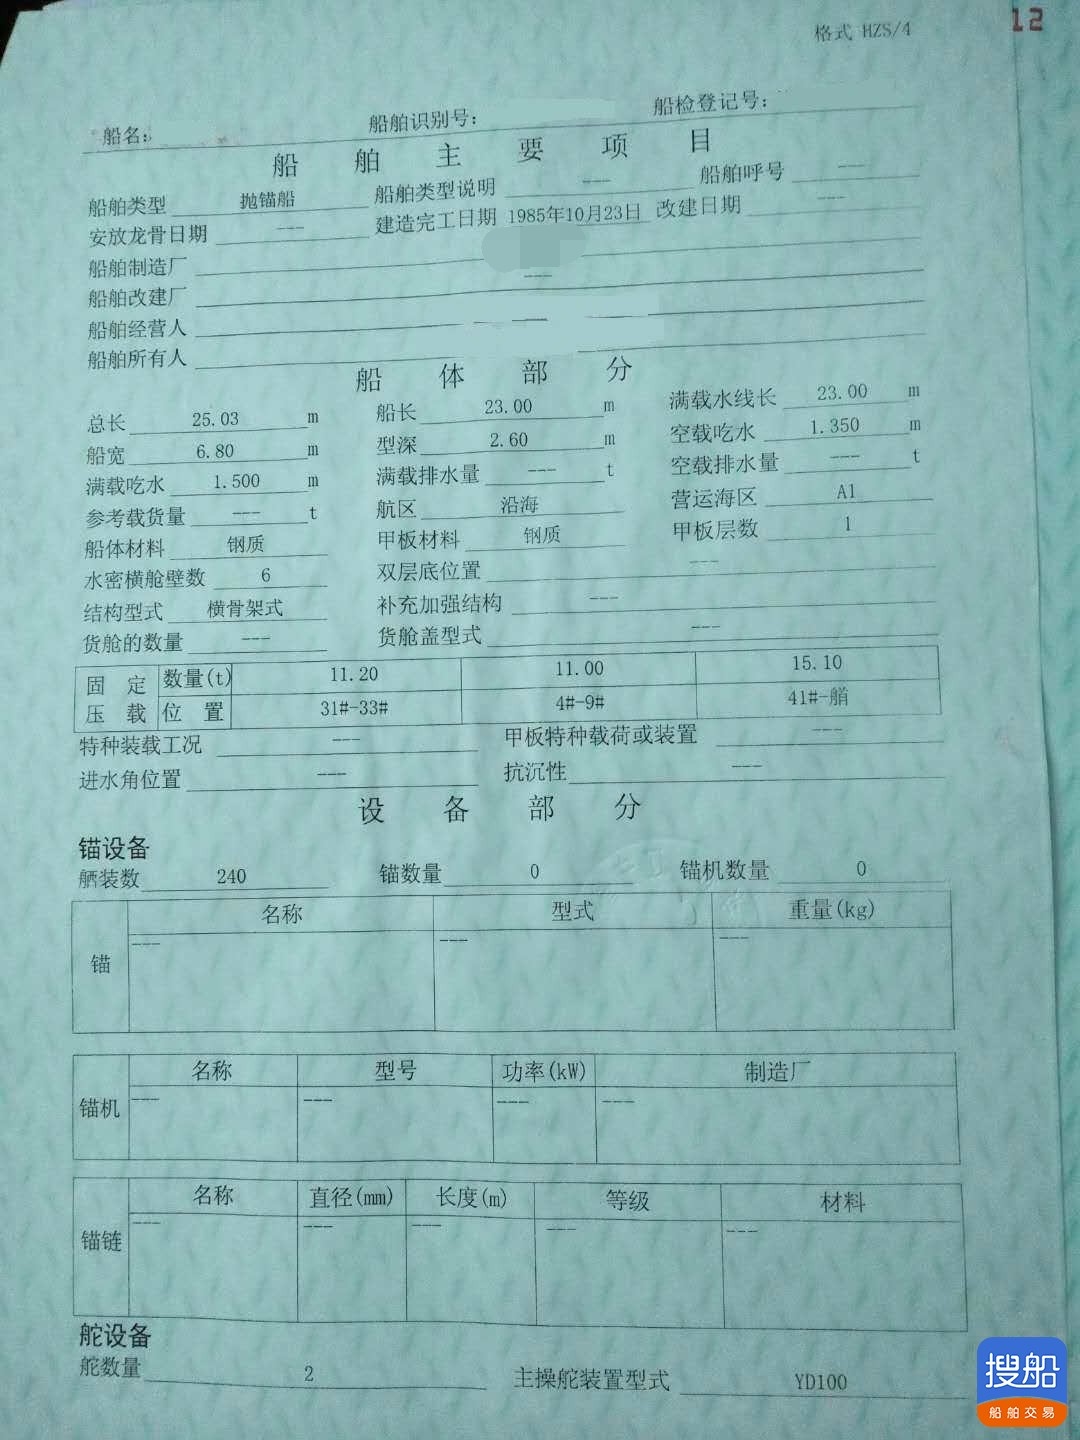 12
格式 HZS/4
船名: 船舶识别号: 船检登记号:
船舶主要项目
船舶类型 抛锚船 船舶类型说明 --- 船舶呼号 ---
安放龙骨日期 --- 建造完工日期 1985年10月23日 改建日期 ---
船舶制造厂
船舶改建厂 ---
船舶经营人
船舶所有人
船体部分
总长 25.03 m 船长 23.00 m 满载水线长 23.00 m
船宽 6.80 m 型深 2.60 m 空载吃水 1.350 m
满载吃水 1.500 m 满载排水量 --- t 空载排水量 --- t
参考载货量 --- t 航区 沿海 营运海区 A1
船体材料 钢质 甲板材料 钢质 甲板层数 1
水密横舱壁数 6 双层底位置 ---
结构型式 横骨架式 补充加强结构 ---
货舱的数量 --- 货舱盖型式 ---
固定 数量(t) 11.20 11.00 15.10
压载 位置 31#-33# 4#-9# 41#-艏
特种装载工况 --- 甲板特种载荷或装置 ---
进水角位置 --- 抗沉性 ---
设备部分
锚设备
舾装数 240 锚数量 0 锚机数量 0
名称 型式 重量(kg)
锚 --- --- ---
名称 型号 功率(kW) 制造厂
锚机 --- --- --- ---
名称 直径(mm) 长度(m) 等级 材料
锚链 --- --- --- --- ---
舵设备
舵数量 2 主操舵装置型式 YD100
搜船
船舶交易